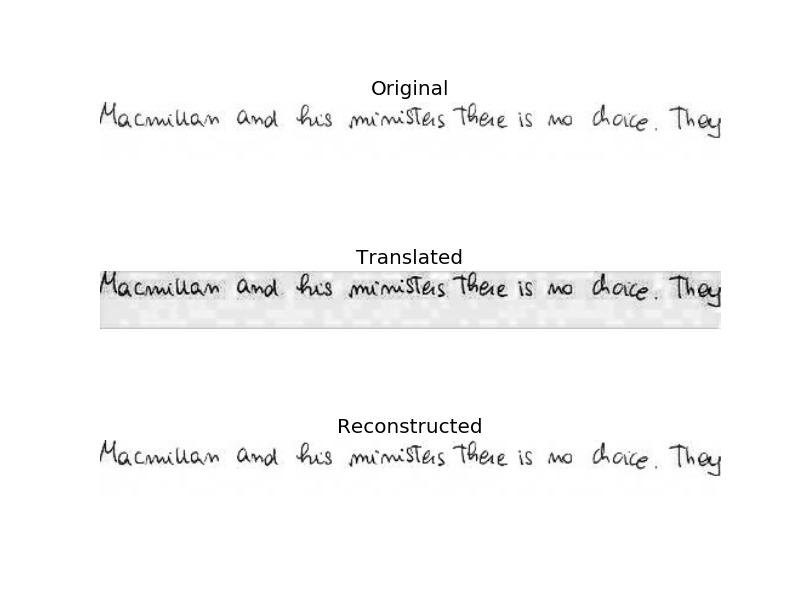 Original
Macmillan and his ministers there is no choice. They
Translated
Macmillan and his ministers there is no choice. They
Reconstructed
Macmillan and his ministers there is no choice. They